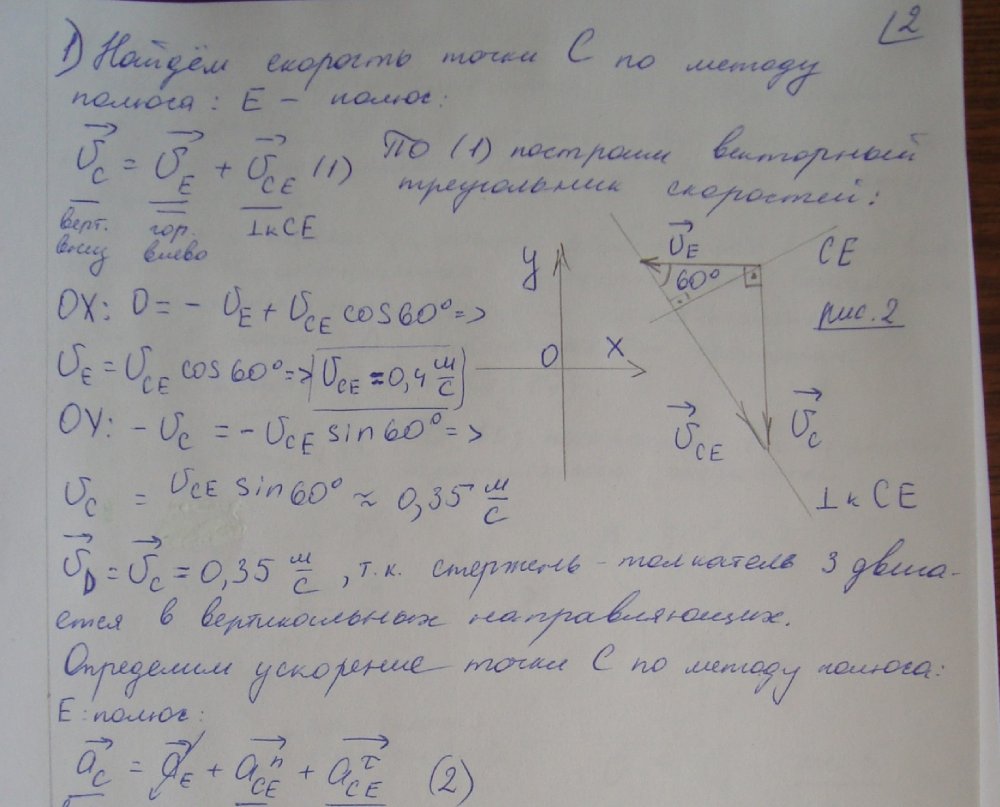 2
1) Найдём скорость точки С по методу
полюса: Е – полюс:
V⃗C = V⃗E + V⃗CE (1) По (1) построим векторный
треугольник скоростей:
верт. вниз
гор. влево
⊥ к CE
OX: 0 = - VE + VCE cos60° =>
VE = VCE cos60° => VCE ≈ 0,4 м/с
OY: - VC = - VCE sin60° =>
VC = VCE sin60° ≈ 0,35 м/с
y
O
x
V⃗E
60°
CE
рис. 2
V⃗CE
V⃗C
⊥ к CE
V⃗D = V⃗C = 0,35 м/с, т.к. стержень-толкатель 3 двига-
ется в вертикальных направляющих.
Определим ускорение точки С по методу полюса:
Е: полюс:
a⃗C = a⃗E + a⃗ⁿCE + a⃗τCE (2)